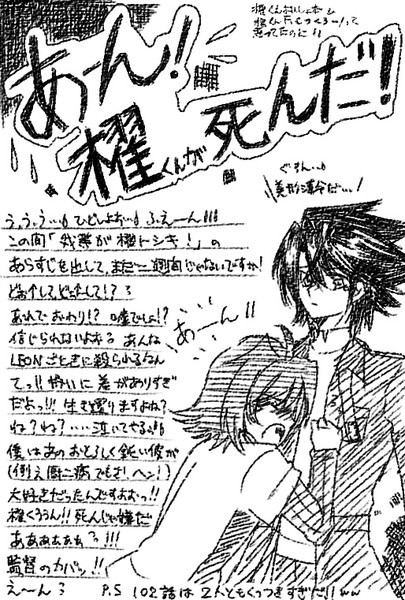 あーん！
櫂くんが
死んだ！
ぐすん…
美形薄命だ…！
う,う,う…ひどいよお… ふえーん!!!
この間「我慢が櫂トシキ！」の
あらすじを出して、まだ一週間じゃないですか！
どおして、どおして!?
あれでおわり!? 嘘でしょ!?
信じられないよおあんな
LEONごときに殺られるなん
てっ!!
差がありすぎ
だよっ!! 生き還りますよね？
ね？ね？……泣いてやるぅ
僕はあのおとろしく鈍い彼が
(例え厨二病でもさ！ヘン！)
大好きだったんですよおっ!!
櫂くううん!! 死んじゃ嫌だ
ああああああっ!!!
監督のカバッ!!
え～ん
あーん!!
P.S 102話は2人ともくっつきすぎだ!! ww